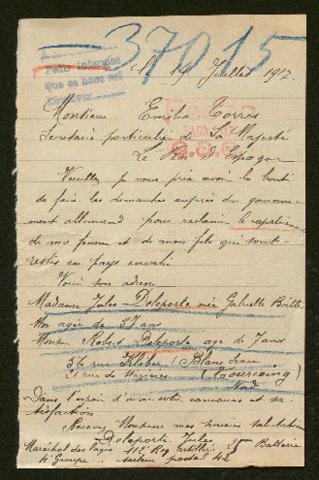 37015
Pedir informes
que se hace así
Le 19 Juillet 1917
Monsieur Emilio Torres
Secretaire particulier de Sa Majesté
Le Roi d'Espagne
Veuillez je vous prie avoir la bonté
de faire les démarches auprès du gouverne-
ment allemand pour reclamer le rapatriement
de ma femme et de mon fils qui sont
restés en pays envahi
Voici son adresse
Madame Jules Deleporte née Gabrielle
age de 27 ans
Robert Deleporte age de 7 ans
36 rue Kleber (Blanc Seau
(Tourcoing)
Nord
Dans l'espoir d'avoir et sa-
tisfaction
Recevez Monsieur mes salutations
Deleporte Jules
Maréchal des logis 112e Reg artillerie 25e Batterie
4e Groupe secteur postal 42